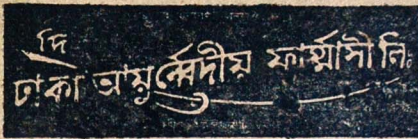 দি
ঢাকা আয়ুর্ব্বেদীয় ফার্ম্মাসী লি: